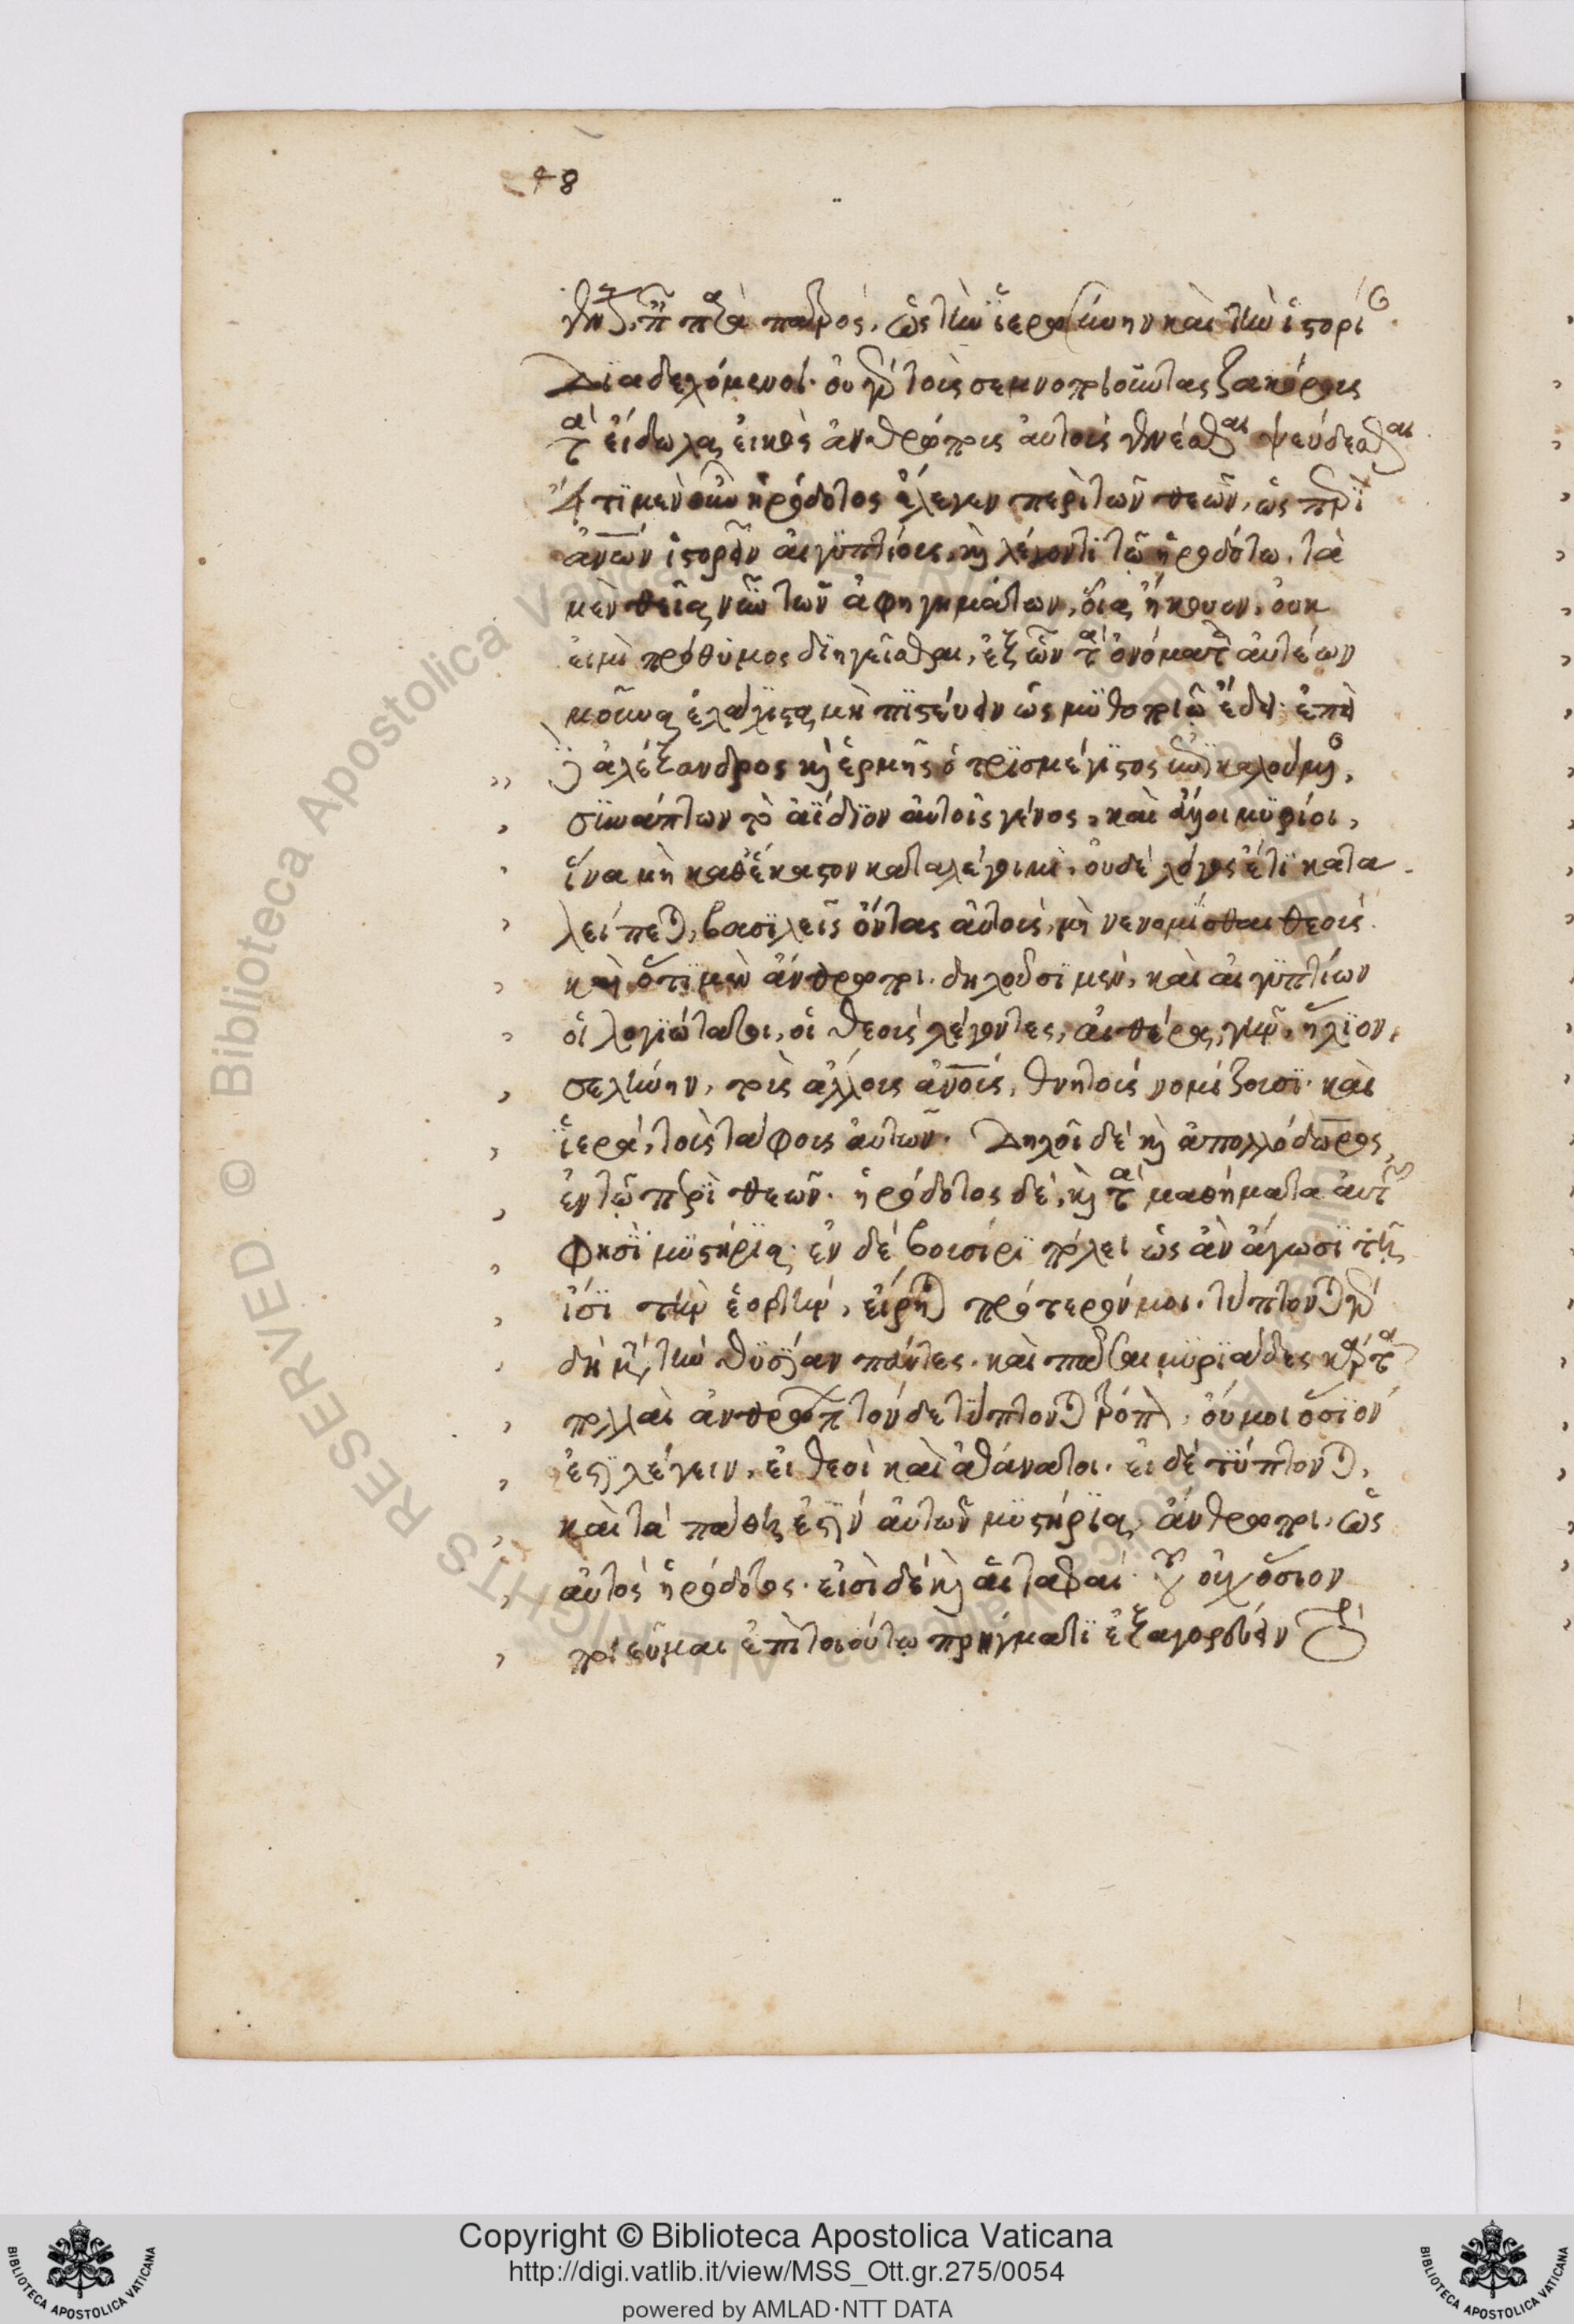 48
παῖς παρὰ πατρὸς, ὡς τὴν ἱερωσύνην καὶ τὴν ἱστορί
διαδεχόμενοι. οὐ γὰρ τοὺς σεμνοποιοῦντας ζακόρους
τὰ εἴδωλα, εἰκὸς ἀνθρώπους αὐτοὺς γενέσθαι ψεύδεσθαι.
Ἀντὶ μὲν οὖν ἡρόδοτος ἔλεγεν περὶ τῶν θεῶν, ὡς περὶ
ἀνων ἱστορεῖν αἰγυπτίους, καὶ λέγοντι τῷ ἡροδότω, τὰ
μὲν θεῖα νῦν τῶν ἀφηγημάτων, οἷα ἤκουον, οὐκ
εἰμὶ πρόθυμος διηγεῖσθαι, ἐξ ὧν τὰ ὀνόματα αὐτέων
μοῦνα, ἐλάχιστα μὴ πιστεύειν ὡς μυθοποιῷ ἔδει. ἐπεὶ
δὲ ἀλέξανδρος καὶ ἑρμῆς ὁ τρισμέγιστος καλούμενος,
συνάπτων τὸ ἀίδιον αὐτοῖς γένος, καὶ ἄλλοι μυρίοι,
ἵνα μὴ καθέκαστον καταλέγοιμι, οὐδὲ λόγος ἔτι κατα
λείπεται, βασιλεῖς ὄντας αὐτοὺς, μὴ νενομίσθαι θεούς.
καὶ ὅτι μὲν ἄνθρωποι. δηλοῦσι μὲν, καὶ αἰγυπτίων
οἱ λογιώτατοι, οἱ θεοὺς λέγοντες, αἰθέρα, γῆν, ἥλιον,
σελήνην, τοὺς ἄλλους ἀνους, θνητοὺς νομίζουσι. καὶ
ἱερὰ, τοὺς τάφους αὐτῶν. Δηλοῖ δὲ καὶ ἀπολλόδωρος,
ἐν τῷ περὶ θεῶν. ἡρόδοτος δὲ, καὶ τὰ μαθήματα αὐτῶν
φησὶ μυστήρια. ἐν δὲ βουσίρι πόλει ὡς ἀνάγωσι τῇ
ἴσι τὴν ἑορτὴν, εἴρηται πρότερόν μοι. τύπτονται γὰρ
δὴ μετὰ τὴν θυσίαν πάντες. καὶ πᾶσαι μυριάδες κάρτα
πολλαὶ ἀνθρώπων τόνδε τύπτονται τρόπον, οὔ μοι ὅσιόν
ἐστι λέγειν. εἰ θεοὶ καὶ ἀθάνατοι. εἰ δὲ τύπτονται,
καὶ τὰ πάθη ἐστὶν αὐτῶν μυστήρια, ἄνθρωποι. ὡς
αὐτὸς ἡρόδοτος. εἰσὶ δὲ καὶ αἱ ταφαὶ. τοῦ οὐχ ὅσιον
ποιεῦμαι ἐπὶ τοιούτῳ πρήγματι ἐξαγορεύειν
Copyright © Biblioteca Apostolica Vaticana
http://digi.vatlib.it/view/MSS_Ott.gr.275/0054
powered by AMLAD·NTT DATA